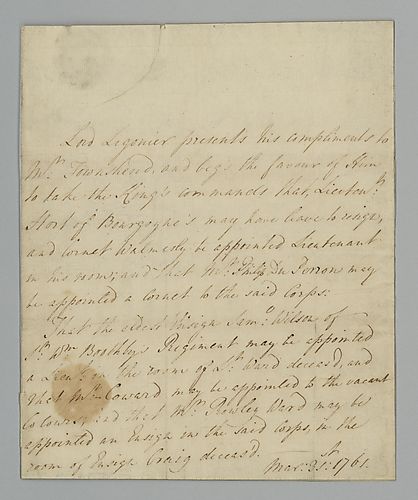 Lord Legonier presents his compliments to
Mr. Townshend, and begs the favour of Him
to take the King's commands that, Lieutent.
Hort of Bourgoyne's may have leave to resign,
and Cornet Walmesly be appointed Lieutenant
in his room; and that Mr. Philip Du Perron may
be appointed a Cornet to the said Corps:
That the eldest Ensign Saml. Wilson of
Sr. Wm. Boothby's Regiment may be appointed
a Lieut. in the room of Lt. Ward deceas'd, and
that Mr. Coward may be appointed to the vacant
Colours; and that Mr. Rowley Ward may be
appointed an Ensign in the said Corps, in the
room of Ensign Craig deceas'd.
Mar: 31st: 1761.